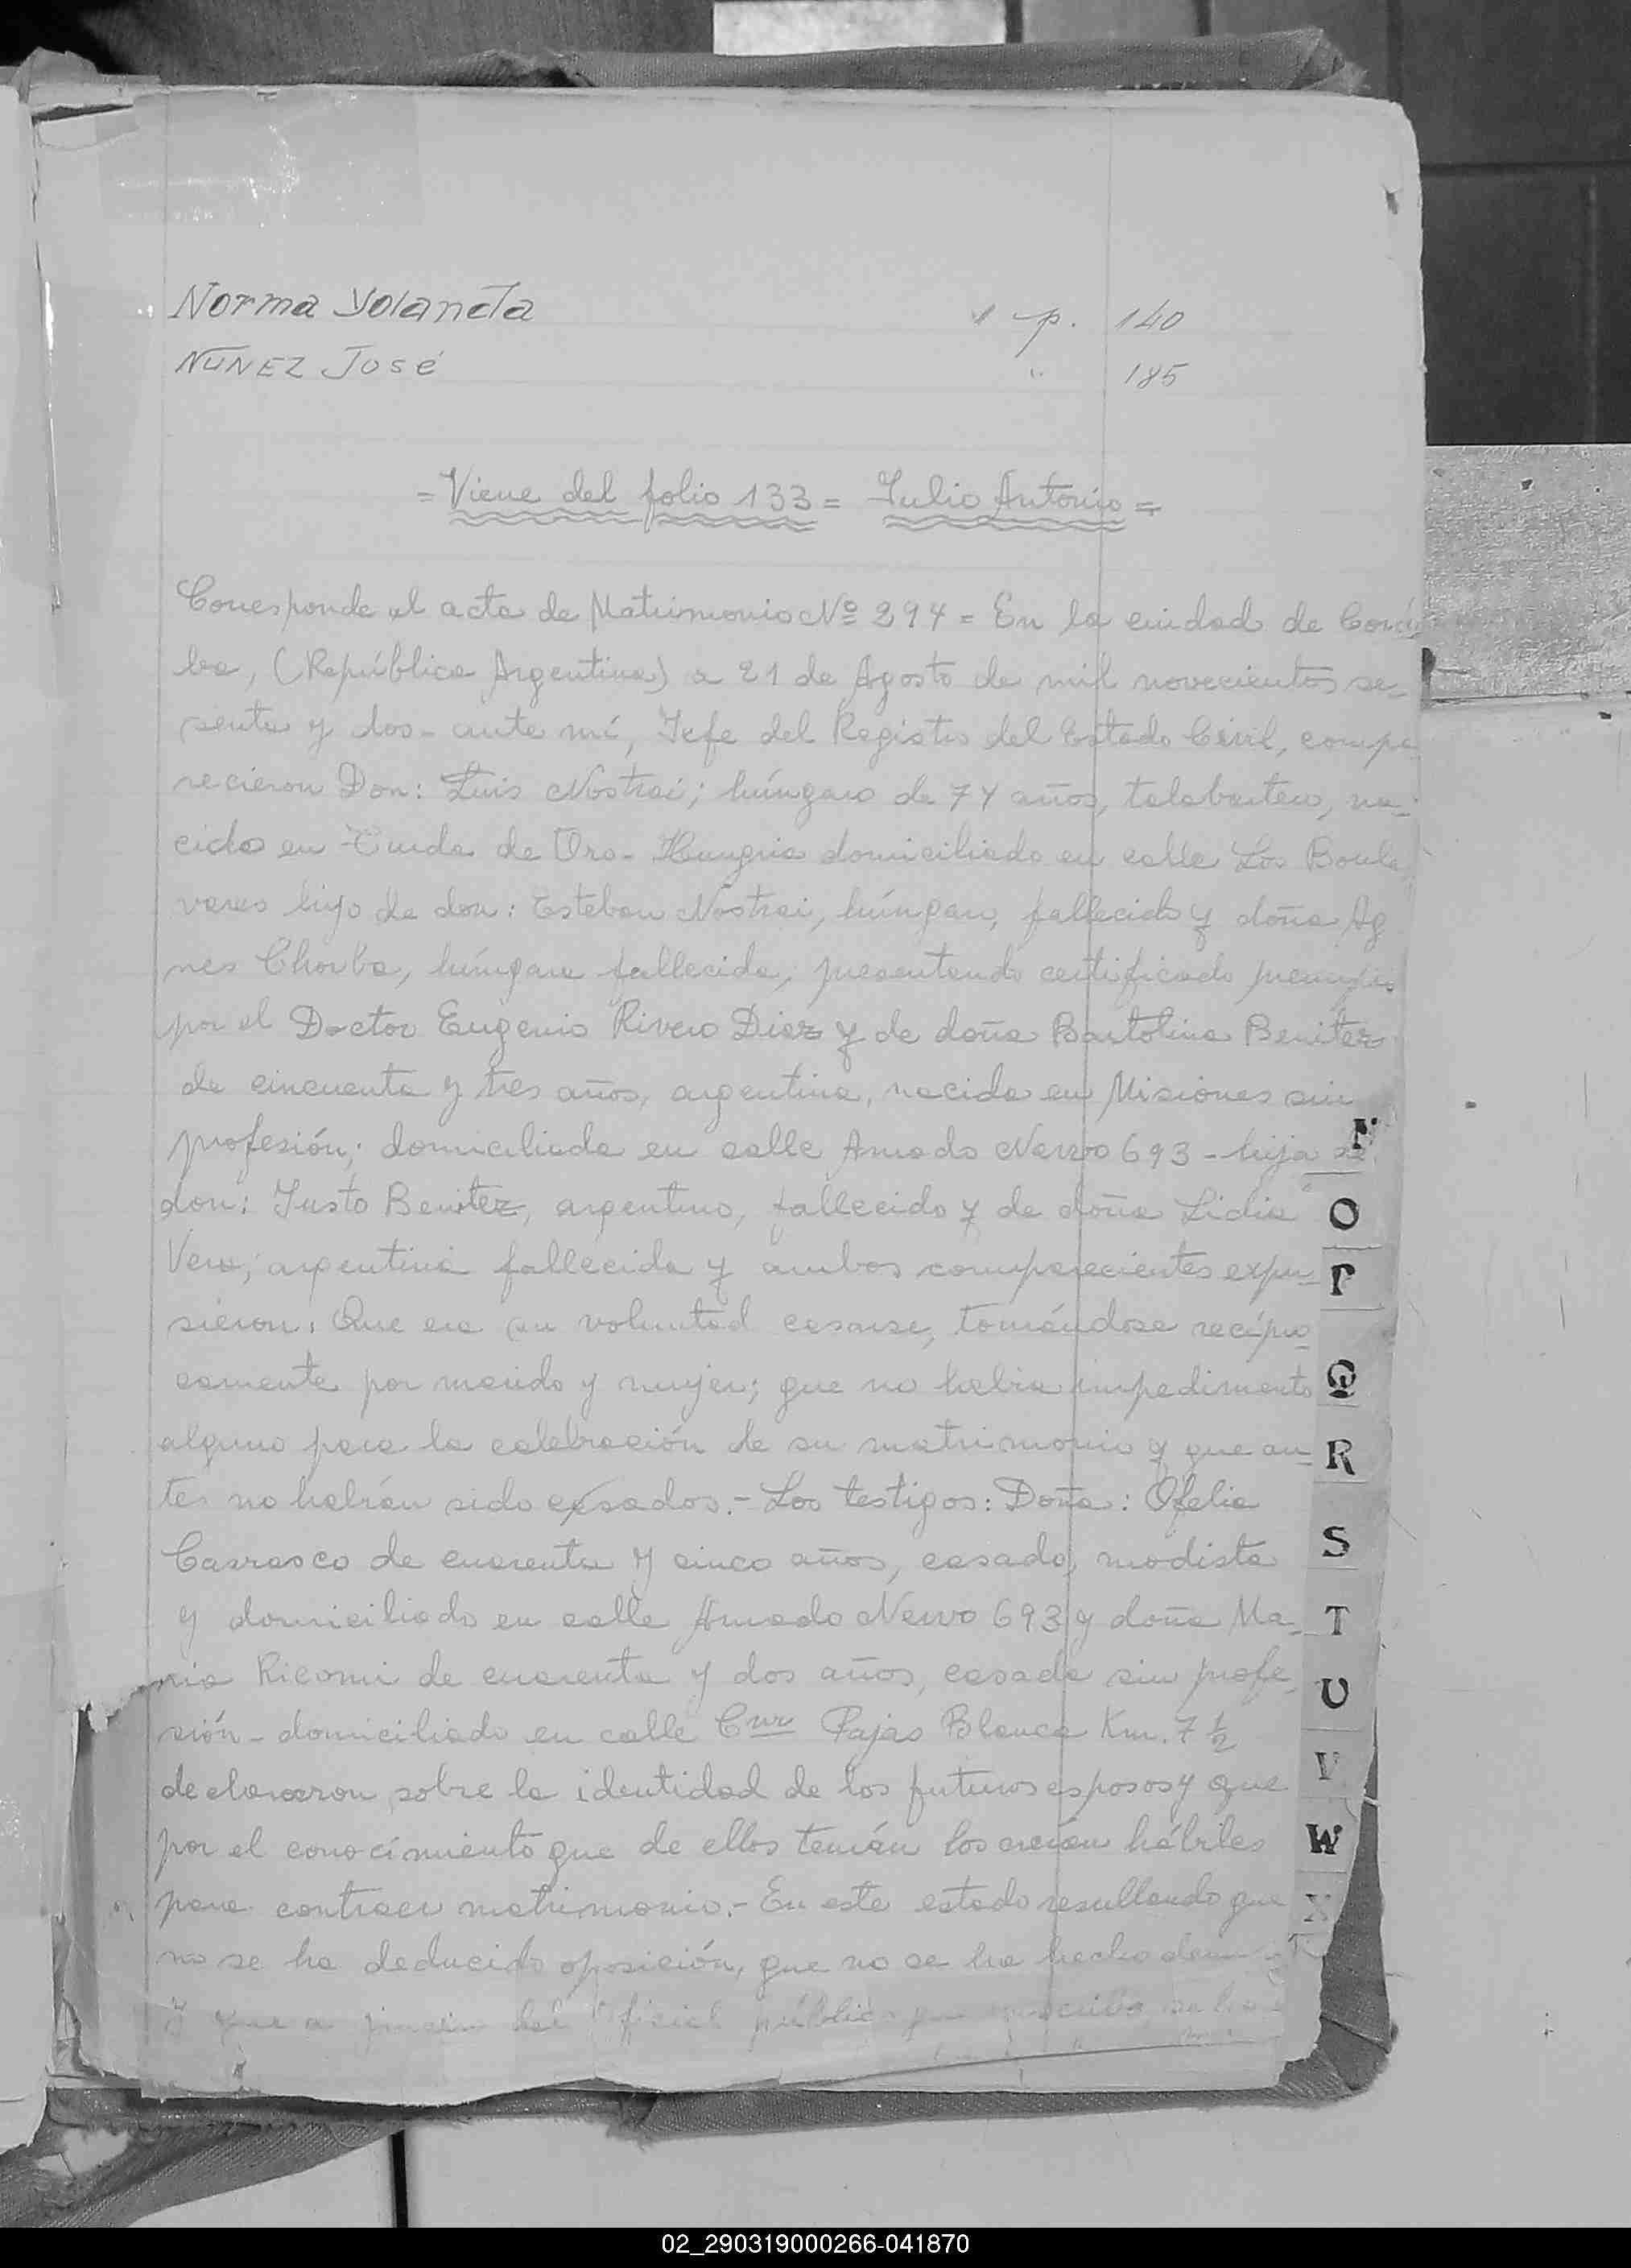 Norma Yolanda 1 p. 140
NUNEZ José " 185
= Viene del folio 133 = Julio Antonio =
Corresponde al acta de Matrimonio Nº 294 = En la ciudad de Córdo
ba, (República Argentina) a 21 de Agosto de mil novecientos se-
senta y dos - ante mí, Jefe del Registro del Estado Civil, compa
recieron Don: Luis Nostrai; húngaro de 74 años, talabartero, na-
cido en de Oro - Hungria domiciliado en calle Los Boule
vares hijo de don: Esteban Nostrai, húngaro, fallecido y doña Ag
nes Chorba, húngara fallecida, presentando certificado prenup.
por el Doctor Eugenio Rivero Diaz y de doña Bartolina Benitez
de cincuenta y tres años, argentina, nacida en Misiones sin
profesión; domiciliada en calle Amado Nervo 693 - hija de
don: Justo Benitez, argentino, fallecido y de doña Lidia
Vera; argentina fallecida y ambos comparecientes expu-
sieron: Que era su voluntad casarse, tomándose recípro-
camente por marido y mujer; que no habia impedimento
alguno para la celebración de su matrimonio y que an-
tes no habían sido casados. - Los testigos: Doña: Ofelia
Carrasco de cuarenta y cinco años, casada, modista
y domiciliado en calle Amado Nervo 693 y doña Ma-
ria Ricomi de cuarenta y dos años, casada sin profe-
sión - domiciliado en calle Cno Pajas Blanca Km. 7 ½
declararon sobre la identidad de los futuros esposos y que
por el conocimiento que de ellos tenían los creían hábiles
para contraer matrimonio. - En este estado resultando que
no se ha deducido oposición, que no se ha hecho
y que a juicio del oficial público que suscribe, se ha
N
O
P
Q
R
S
T
U
V
W
X
02_290319000266-041870